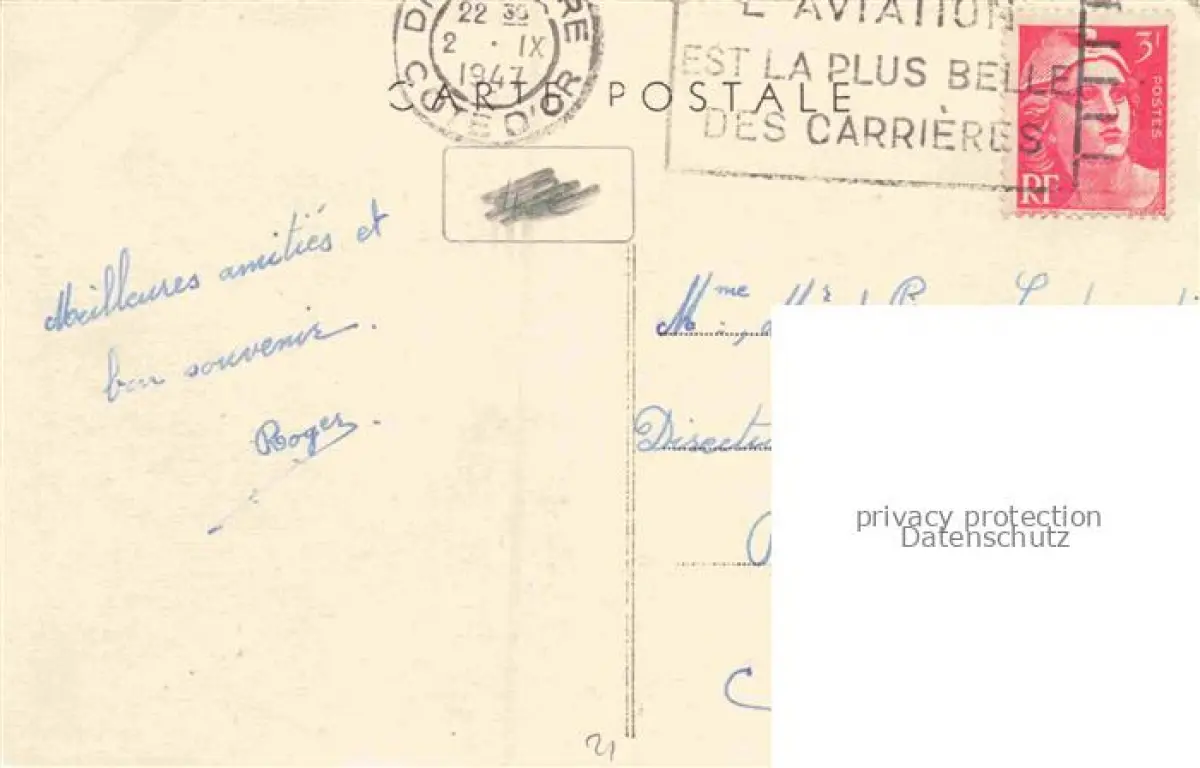 22 30
2 · IX
1947
CÔTE D'OR
L'AVIATION
EST LA PLUS BELLE
DES CARRIÈRES
3F
POSTES
RF
CARTE POSTALE
Meilleures amitiés et
bon souvenir.
Roger.
Mme
privacy protection
Datenschutz
21